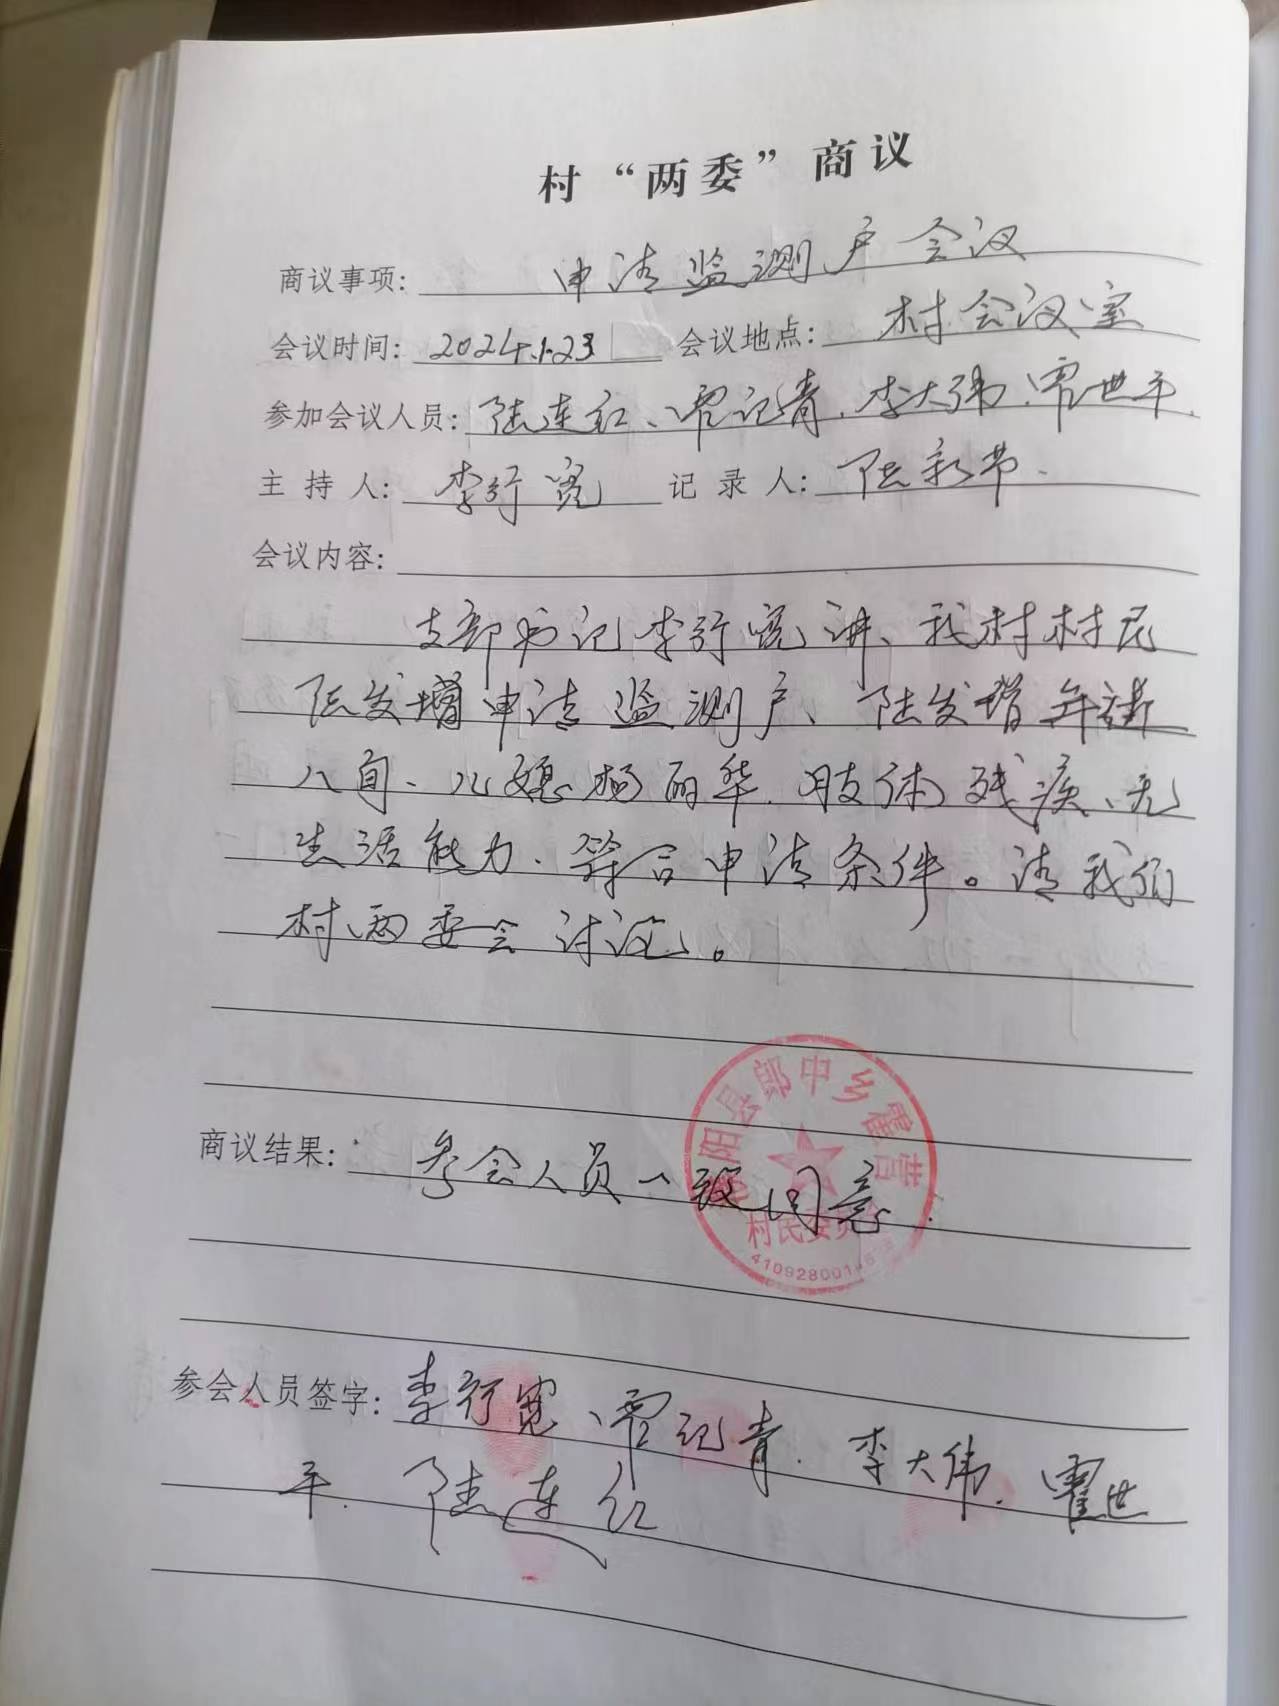 村“两委”商议
商议事项: 申请监测户会议
会议时间: 2024.1.23 会议地点: 村会议室
参加会议人员: 陆连红、霍记青.李大伟.霍世平.
主持人: 李行宽 记录人: 陆新节.
会议内容:
支部书记李行宽讲、我村村民
陆发增申请监测户、陆发增年龄
八旬、儿媳杨丽华.肢体残疾、无
生活能力、符合申请条件。请我们
村两委会讨论。
阳县郎中乡霍营
村民委员会
商议结果: 参会人员一致同意.
41092800
参会人员签字: 李行宽、霍记青.李大伟.霍世
平.陆连红